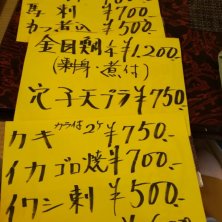 馬刺 ¥700.-
カツ煮込 ¥500-
金目鯛 ¥1,200.
(刺身・煮付)
穴子天プラ ¥750
カキ カライ付 2ケ ¥750.-
イカゴロ焼 ¥700.-
イワシ刺 ¥500.-